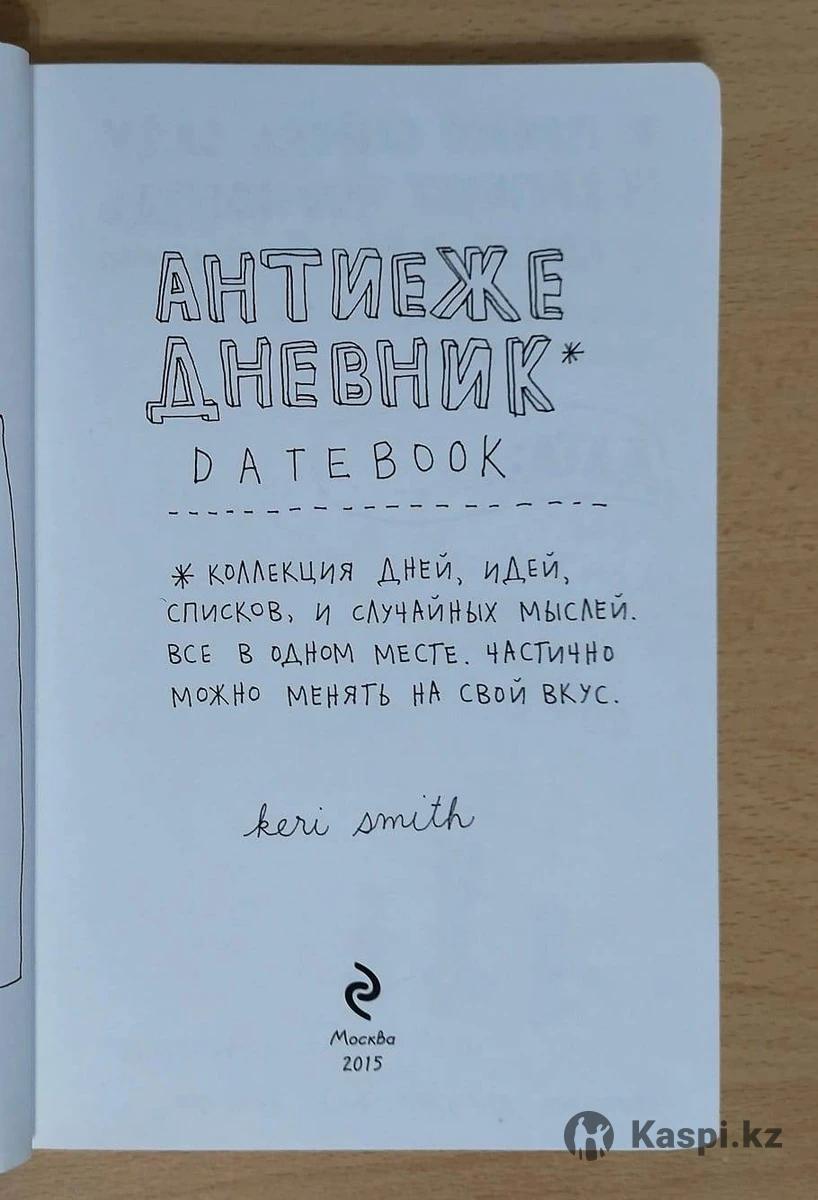 АНТИЕЖЕ
ДНЕВНИК*
DATEBOOK
* КОЛЛЕКЦИЯ ДНЕЙ, ИДЕЙ,
СПИСКОВ, И СЛУЧАЙНЫХ МЫСЛЕЙ.
ВСЕ В ОДНОМ МЕСТЕ. ЧАСТИЧНО
МОЖНО МЕНЯТЬ НА СВОЙ ВКУС.
keri smith
Москва
2015
Kaspi.kz